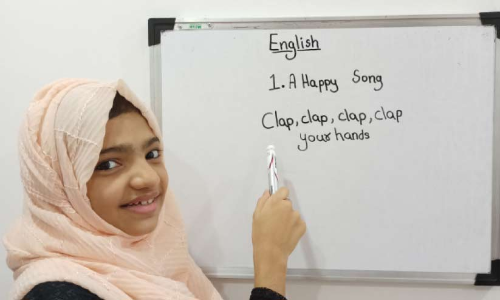 English
1. A Happy Song
Clap, clap, clap, clap
your hands